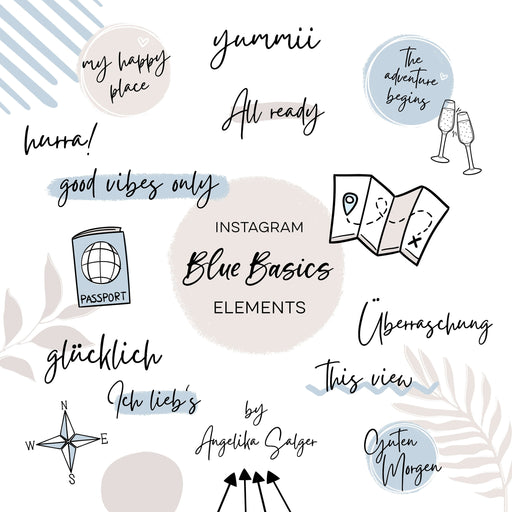 yummii
my happy
place
The
adventure
begins
All ready
hurra!
good vibes only
INSTAGRAM
Blue Basics
ELEMENTS
PASSPORT
Überraschung
glücklich
This view
Ich lieb's
by
Angelika Salger
N
W E
S
Guten
Morgen